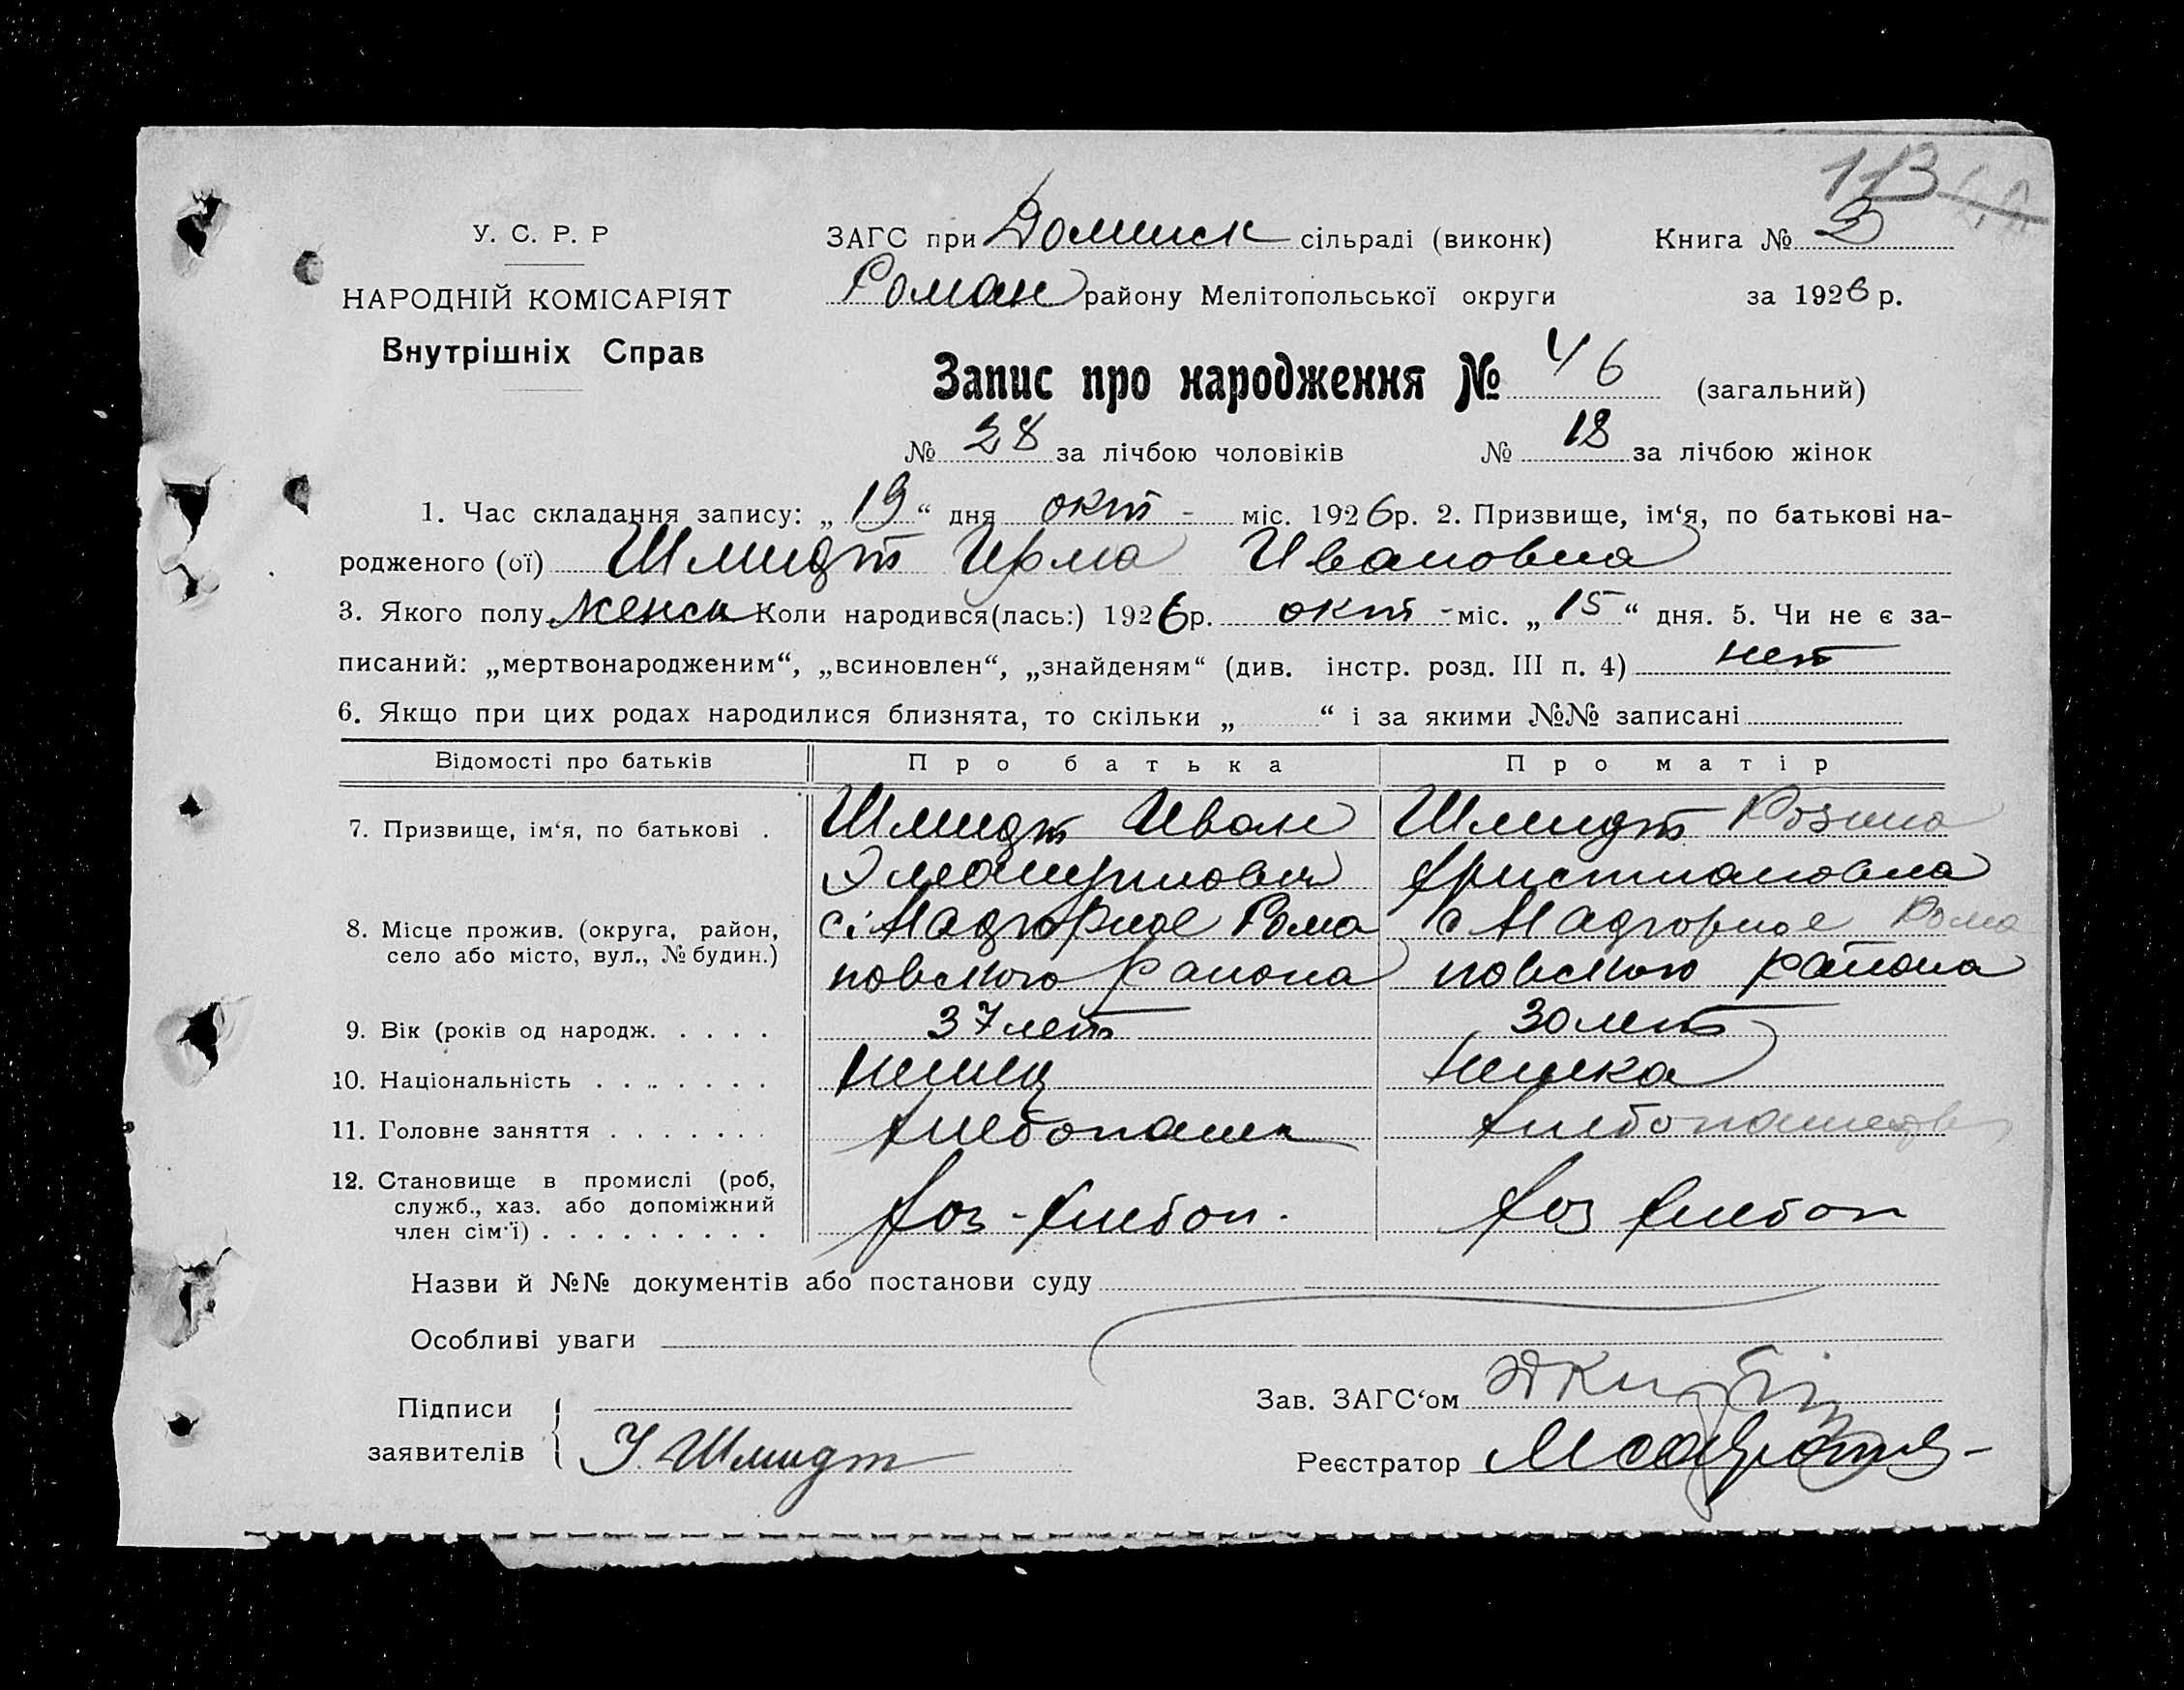 113
У. С. Р. Р
ЗАГС при Долинск сільраді (виконк) Книга № 2
НАРОДНІЙ КОМІСАРІЯТ
Роман району Мелітопольської округи за 1926 р.
Внутрішніх Справ
Запис про народження № 46 (загальний)
№ 28 за лічбою чоловіків № 18 за лічбою жінок
1. Час складання запису: „ 19 “ дня окт - міс. 1926р. 2. Призвище, ім‘я, по батькові на-
родженого (ої) Шмидт Ирма Ивановна
3. Якого полу женск Коли народився(лась:) 1926р. окт - міс. „ 15 “ дня. 5. Чи не є за-
писаний: „мертвонародженим“, „всиновлен“, „знайденям“ (див. інстр. розд. III п. 4) нет
6. Якщо при цих родах народилися близнята, то скільки „ “ і за якими №№ записані
Відомості про батьків Про батька Про матір
7. Призвище, ім‘я, по батькові . Шмидт Иван Шмидт Розина
Християновна
8. Місце прожив. (округа, район, с. Надгорное Рома с Надгорное Рома
село або місто, вул., № будин.) новского района новского района
9. Вік (років од народж. . . . . 37 лет 30 лет
10. Національність . . . . . . . немец немка
11. Головне заняття . . . . . . . хлебопаш хлебопашеств
12. Становище в промислі (роб,
служб., хаз. або допоміжний
член сім‘ї) . . . . . . . . . . хоз - хлебоп. хоз хлебоп
Назви й №№ документів або постанови суду
Особливі уваги
Підписи Зав. ЗАГС‘ом
заявителів { У Шмидт Реєстратор